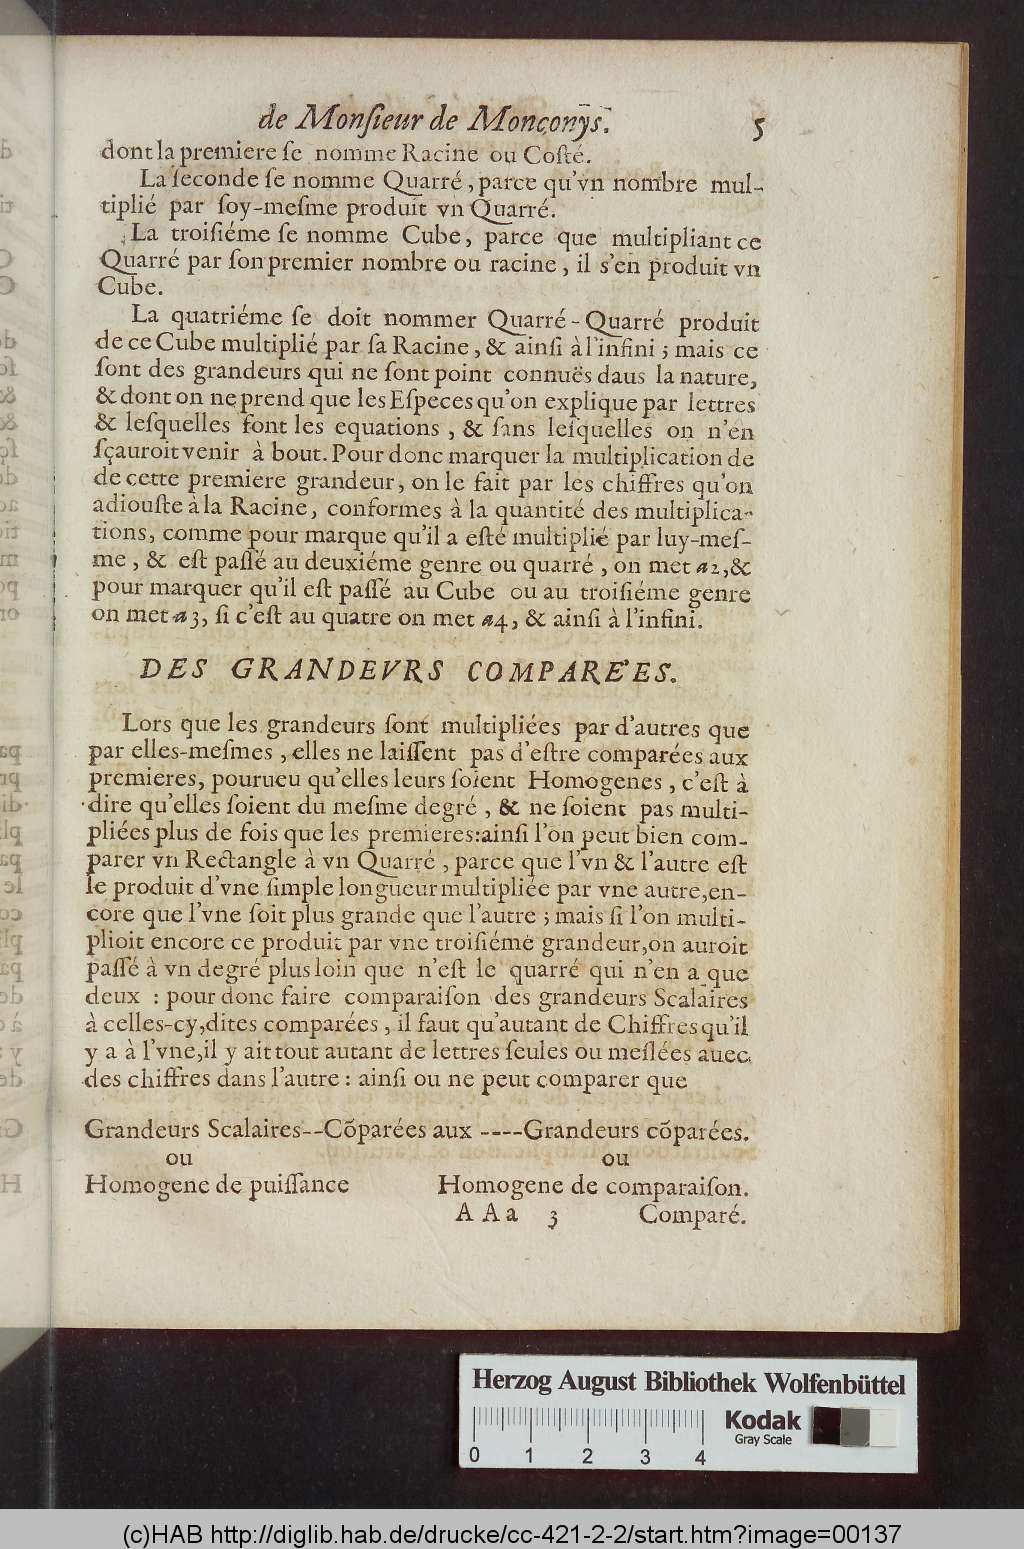 de Monſieur de Monconys. 5
dont la premiere ſe nomme Racine ou Coſté.
La ſeconde ſe nomme Quarré, parce qu'vn nombre mul-
tiplié par ſoy-meſme produit vn Quarré.
La troiſiéme ſe nomme Cube, parce que multipliant ce
Quarré par ſon premier nombre ou racine, il s'en produit vn
Cube.
La quatriéme ſe doit nommer Quarré-Quarré produit
de ce Cube multiplié par ſa Racine, & ainſi à l'infini; mais ce
ſont des grandeurs qui ne ſont point connuës daus la nature,
& dont on ne prend que les Eſpeces qu'on explique par lettres
& leſquelles font les equations, & ſans leſquelles on n'en
ſçauroit venir à bout. Pour donc marquer la multiplication de
de cette premiere grandeur, on le fait par les chiffres qu'on
adiouſte à la Racine, conformes à la quantité des multiplica-
tions, comme pour marque qu'il a eſté multiplié par luy-meſ-
me, & eſt paſſé au deuxiéme genre ou quarré, on met a2, &
pour marquer qu'il eſt paſſé au Cube ou au troiſiéme genre
on met a3, ſi c'eſt au quatre on met a4, & ainſi à l'infini.
DES GRANDEVRS COMPARE'ES.
Lors que les grandeurs ſont multipliées par d'autres que
par elles-meſmes, elles ne laiſſent pas d'eſtre comparées aux
premieres, pourueu qu'elles leurs ſoient Homogenes, c'eſt à
dire qu'elles ſoient du meſme degré, & ne ſoient pas multi-
pliées plus de fois que les premieres: ainſi l'on peut bien com-
parer vn Rectangle à vn Quarré, parce que l'vn & l'autre eſt
le produit d'vne ſimple longueur multipliée par vne autre, en-
core que l'vne ſoit plus grande que l'autre; mais ſi l'on multi-
plioit encore ce produit par vne troiſiéme grandeur, on auroit
paſſé à vn degré plus loin que n'eſt le quarré qui n'en a que
deux : pour donc faire comparaiſon des grandeurs Scalaires
à celles-cy, dites comparées, il faut qu'autant de Chiffres qu'il
y a à l'vne, il y ait tout autant de lettres ſeules ou meſlées auec
des chiffres dans l'autre : ainſi ou ne peut comparer que
Grandeurs Scalaires--Cõparées aux ----Grandeurs cõparées.
ou ou
Homogene de puiſſance Homogene de comparaiſon.
A A a 3 Comparé.
Herzog August Bibliothek Wolfenbüttel
Kodak
Gray Scale
0 1 2 3 4
(c)HAB http://diglib.hab.de/drucke/cc-421-2-2/start.htm?image=00137